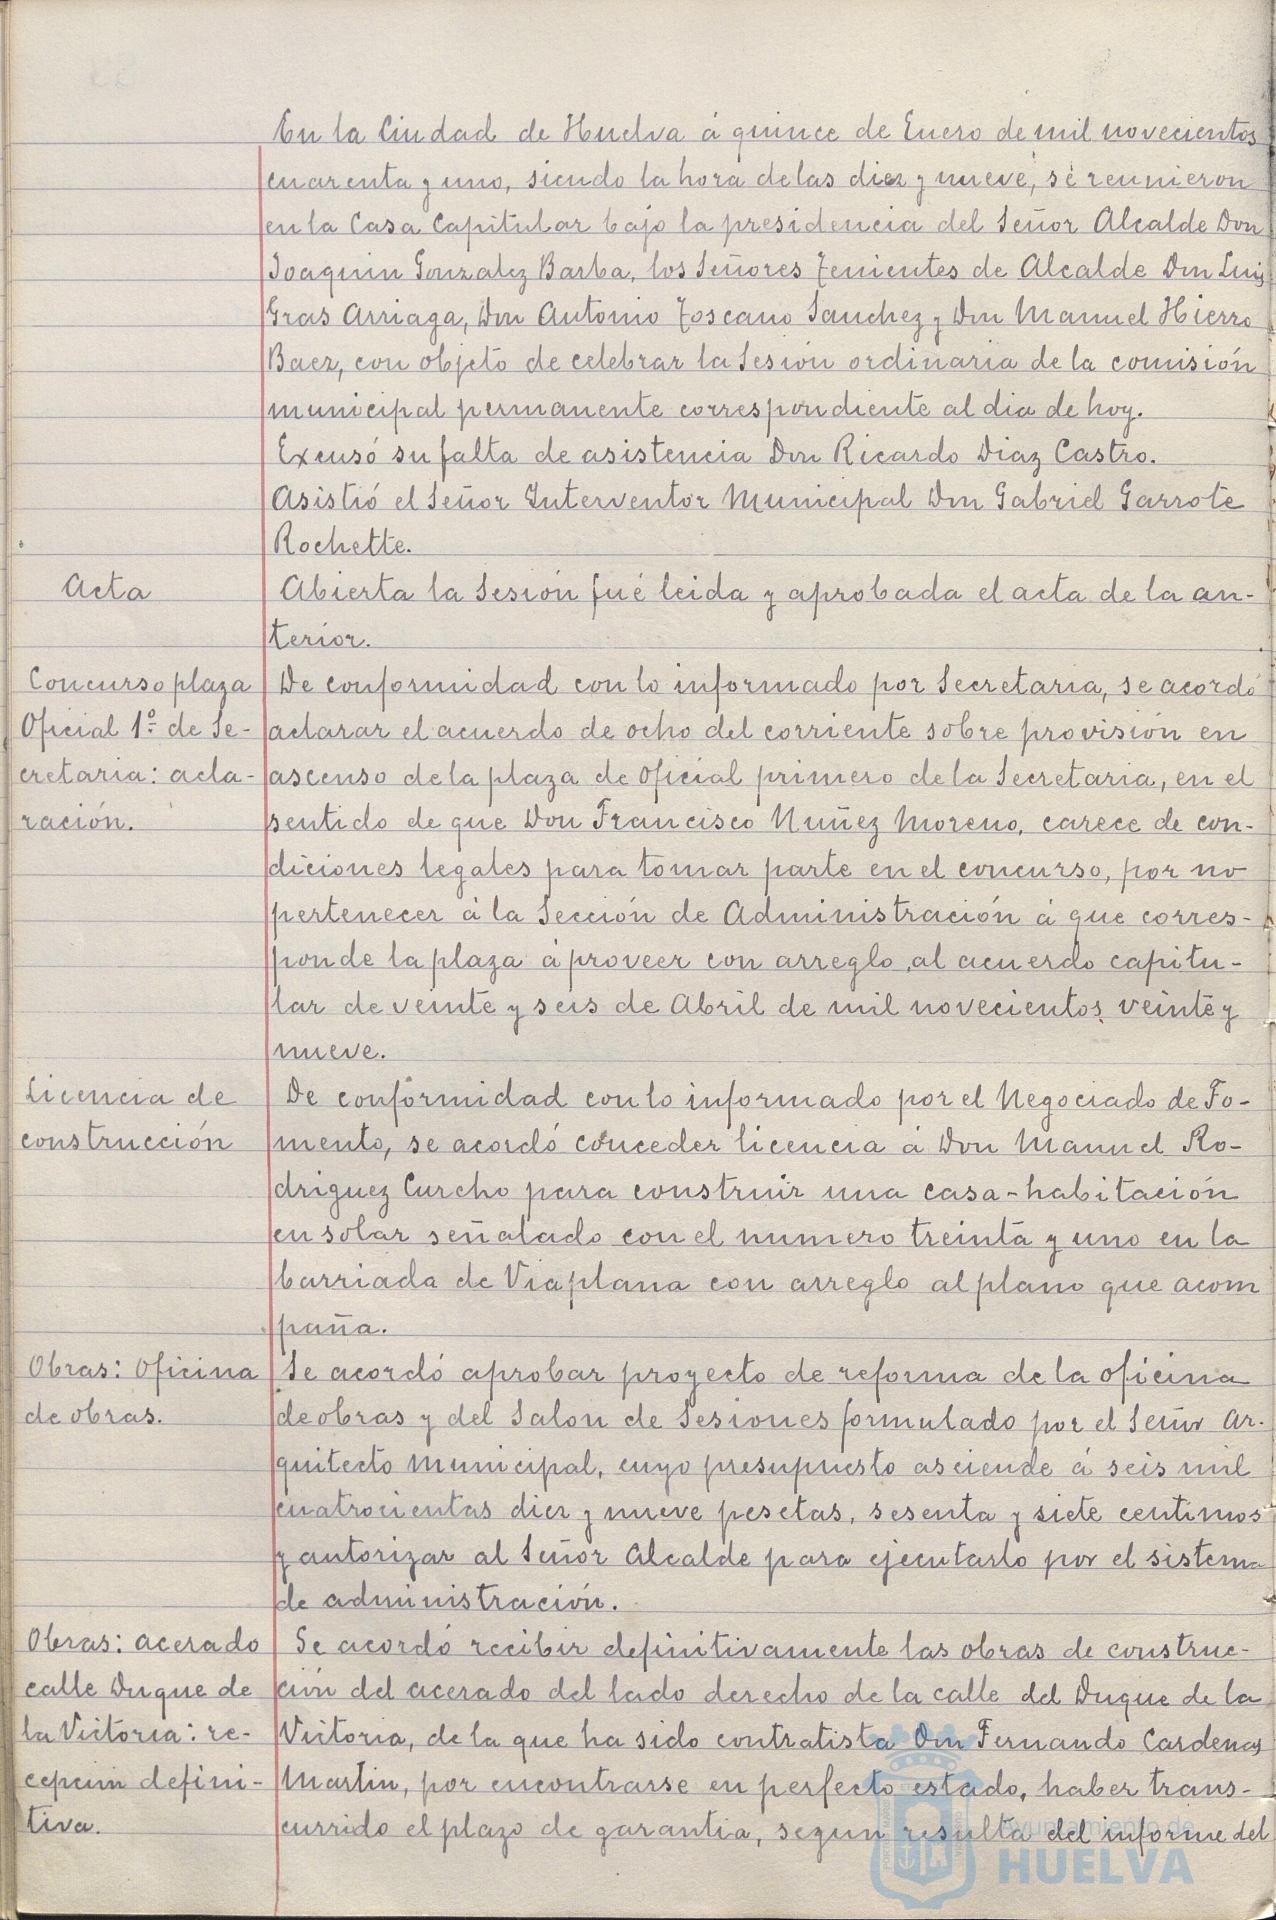 En la Ciudad de Huelva á quince de Enero de mil novecientos
cuarenta y uno, siendo la hora de las diez y nueve, se reunieron
en la Casa Capitular bajo la presidencia del Señor Alcalde Don
Joaquin Gonzalez Barba, los Señores Tenientes de Alcalde Don Luis
Gras Arriaga, Don Antonio Toscano Sanchez y Don Manuel Hierro
Baez, con objeto de celebrar la Sesión ordinaria de la comisión
municipal permanente correspondiente al dia de hoy.
Excusó su falta de asistencia Don Ricardo Diaz Castro.
Asistió el Señor Interventor Municipal Don Gabriel Garrote
Rochette.
Acta
Abierta la Sesión fué leida y aprobada el acta de la an-
terior.
Concurso plaza
Oficial 1º de Se-
cretaria: acla-
ración.
De conformidad con lo informado por Secretaria, se acordó
aclarar el acuerdo de ocho del corriente sobre provisión en
ascenso de la plaza de oficial primero de la Secretaria, en el
sentido de que Don Francisco Nuñez Moreno, carece de con-
diciones legales para tomar parte en el concurso, por no
pertenecer á la Sección de Administración á que corres-
ponde la plaza á proveer con arreglo al acuerdo capitu-
lar de veinte y seis de Abril de mil novecientos veinte y
nueve.
Licencia de
construcción
De conformidad con lo informado por el Negociado de Fo-
mento, se acordó conceder licencia á Don Manuel Ro-
driguez Curcho para construir una casa-habitación
en solar señalado con el numero treinta y uno en la
barriada de Viaplana con arreglo al plano que acom
paña.
Obras: Oficina
de obras.
Se acordó aprobar proyecto de reforma de la oficina
de obras y del Salon de Sesiones formulado por el Señor Ar-
quitecto Municipal, cuyo presupuesto asciende á seis mil
cuatrocientas diez y nueve pesetas, sesenta y siete centimos
y autorizar al Señor Alcalde para ejecutarlo por el sistema
de administración.
Obras: acerado
calle Duque de
la Victoria: re-
cepcion defini-
tiva.
Se acordó recibir definitivamente las obras de construc-
ción del acerado del lado derecho de la calle del Duque de la
Victoria, de la que ha sido contratista Don Fernando Cardenas
Martin, por encontrarse en perfecto estado, haber trans-
currido el plazo de garantia, segun resulta del informe del
Ayuntamiento de
HUELVA